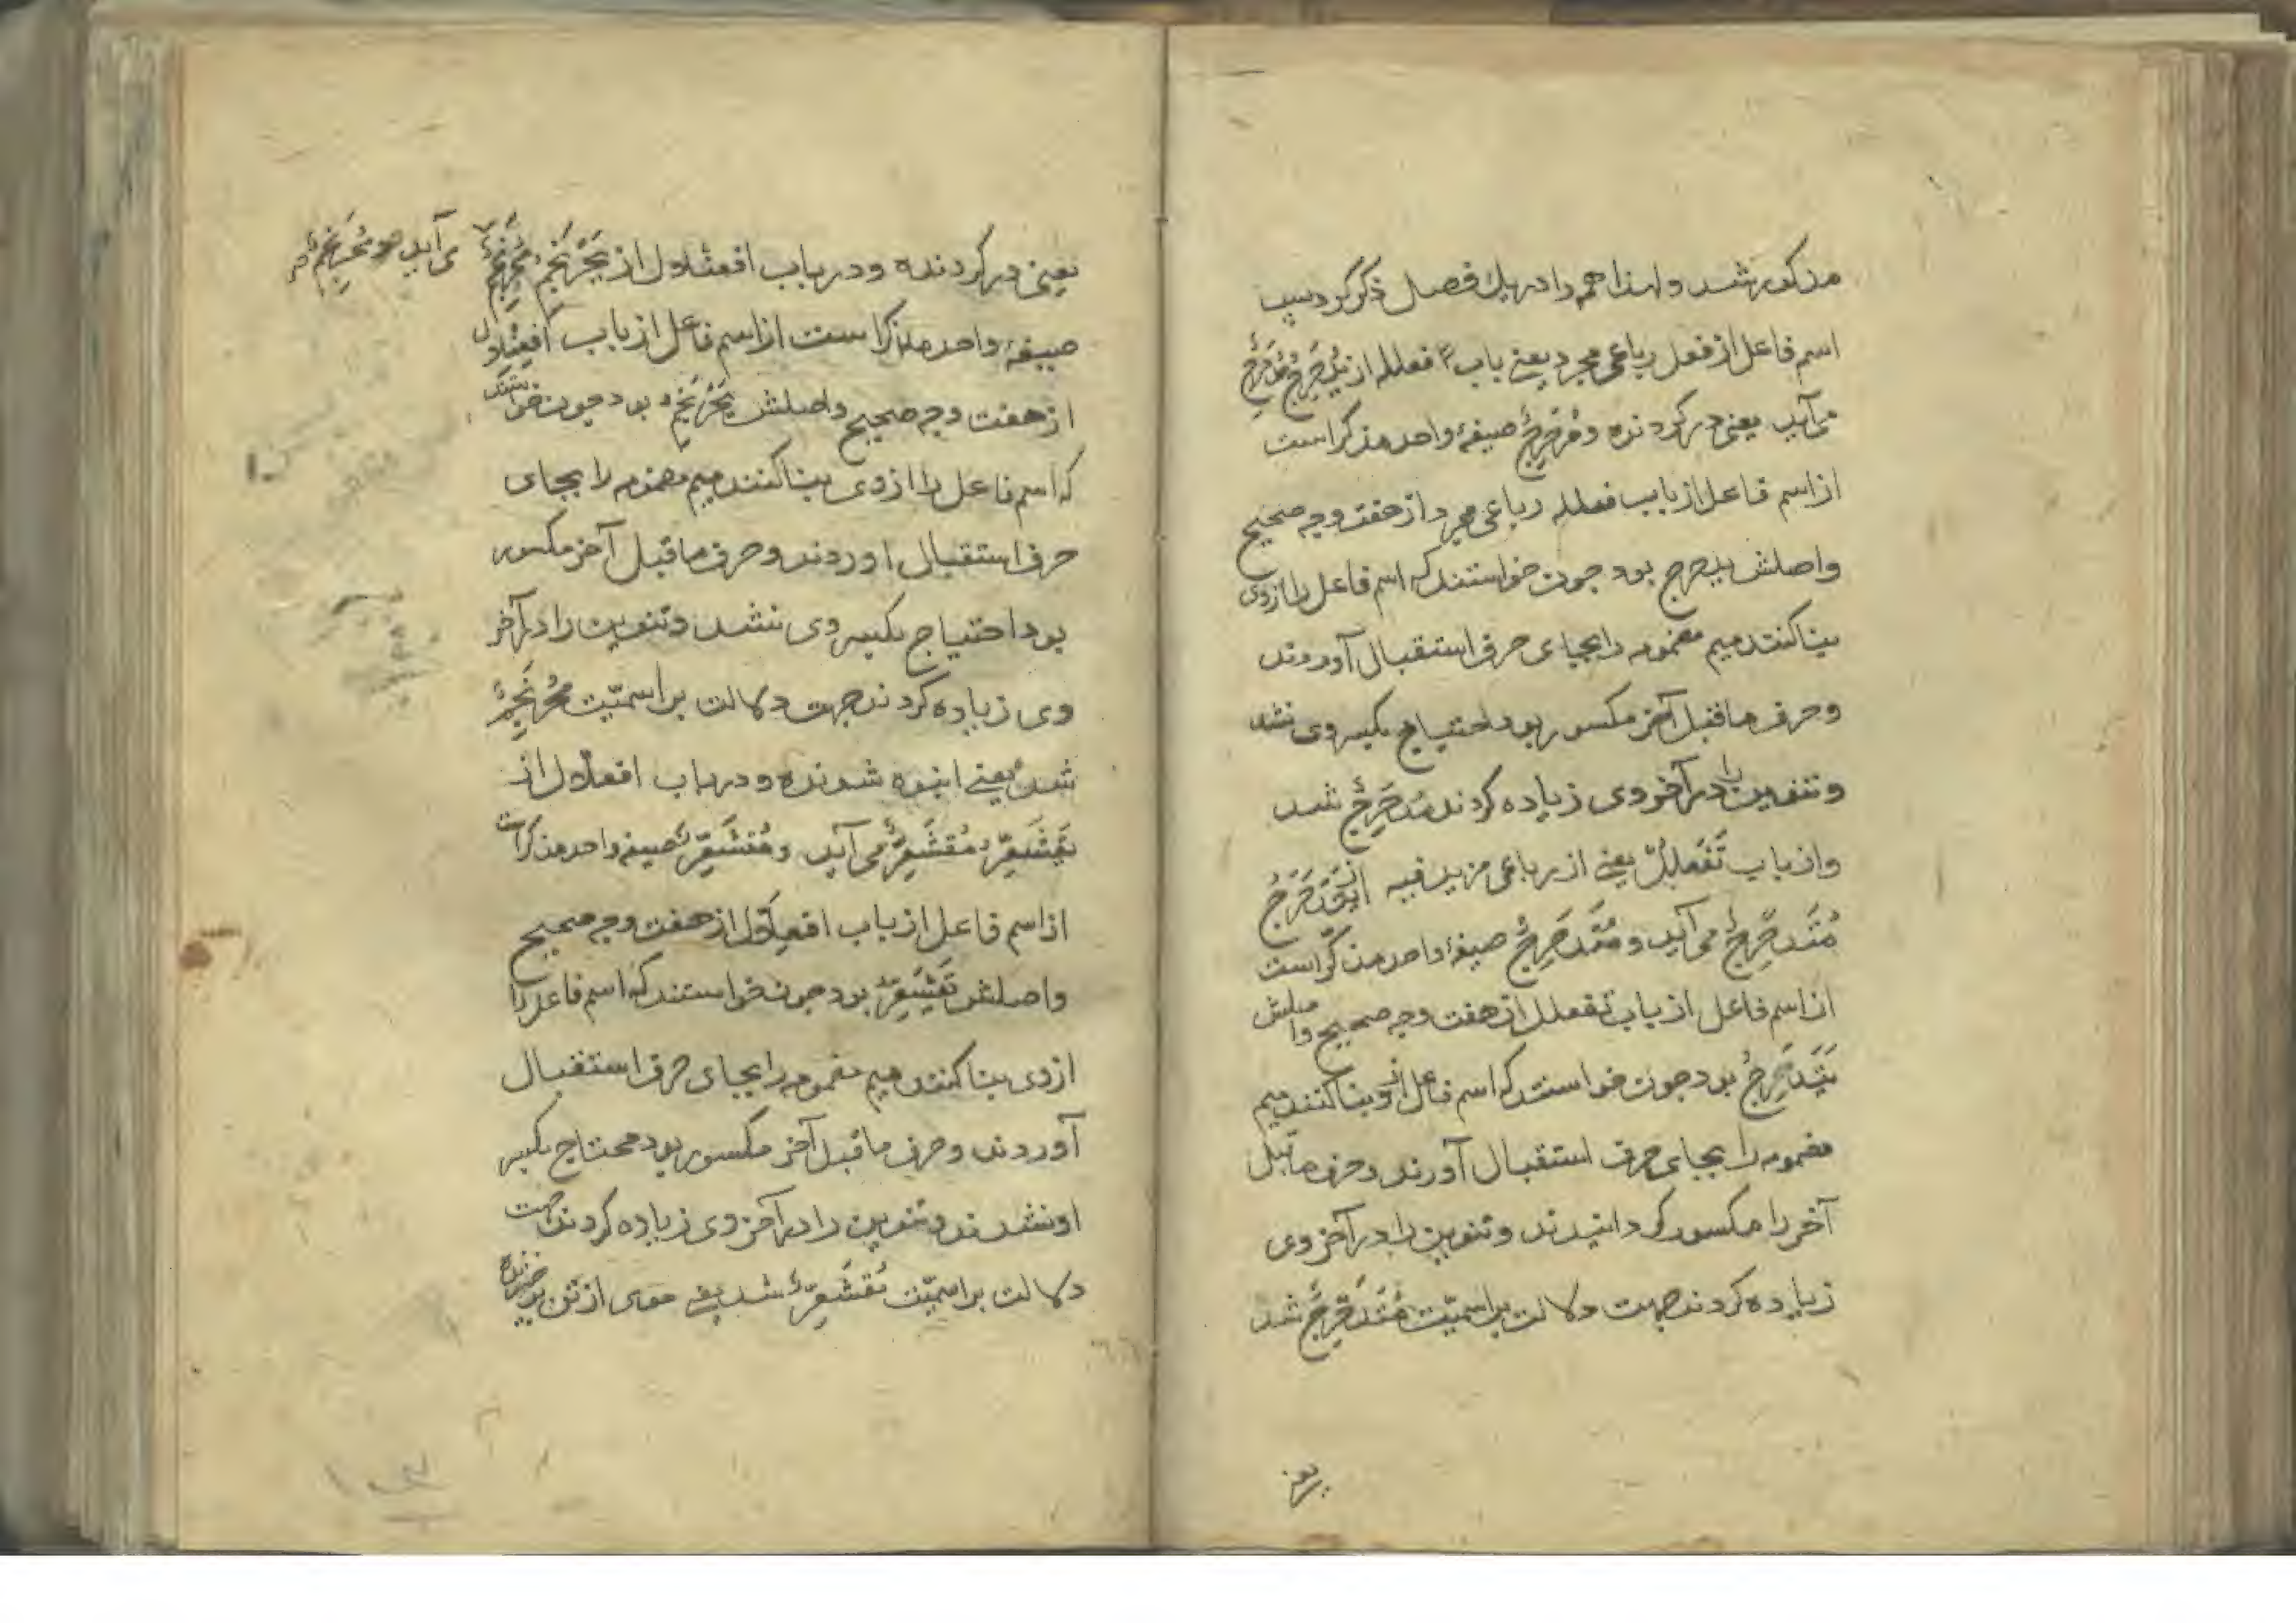 مذکور شد و لهذا همه را در یک فصل ذکر کرد پس
اسم فاعل از فعل رباعی مجرد یعنے باب فعلله از یُدَحرِجُ مُدَحرِجٌ
می‌آید یعنی در کردنده و مُدَحرِجٌ صیغهٔ واحد مذکر است
از اسم فاعل از باب فعلله رباعی مجرد از هفت وجه صحیح
واصلش یدحرج بود چون خواستند که اسم فاعل را از وی
بنا کنند میم مضمومه را بجای حرف استقبال آوردند
وحرف ماقبل آخر مکسور بود احتیاج بکسر وی نشد
وتنوین را در آخر وی زیاده کردند مُدَحرِجٌ شد
واز باب تَفَعلُلٌ یعنے از رباعی مزید فیه از یَتَدَحرَجُ
مُتَدَحرِجٌ می آید و مُتَدَحرِجٌ صیغهٔ واحد مذکر است
از اسم فاعل از باب تفعلل از هفت وجه صحیح واصلش
یَتَدَحرَجُ بود چون خواستند که اسم فاعل از و بنا کنند میم
مضمومه را بجای حرف استقبال آورند وحرف ماقبل
آخر را مکسور کردانیدند وتنوین را در آخر وی
زیاده کردند جهت دلالت بر اسمیّت مُتَدَحرِجٌ شد
یعنی در کردنده ودر باب افعنلال از یَحرَنجِمُ مُحرَنجِمٌ
می آید و مُحرَنجِمٌ
صیغهٔ واحد مذکر است از اسم فاعل از باب افعِنلال
از هفت وجه صحیح واصلش یَحرَنجِمُ بود چون خواستند
که اسم فاعل را از وی بنا کنند میم مضمومه را بجای
حرف استقبال اوردند وحرف ماقبل آخر مکسور
بود احتیاج بکسر وی نشد وتنوین را در آخر
وی زیاده کردند جهت دلالت بر اسمیّت مُحرَنجِمٌ
شد یعنے انبوه شونده ودر باب افعلّال از
یَقشَعِرُّ مُقشَعِرٌّ می آید ومُقشَعِرٌّ صیغه واحد مذکر است
از اسم فاعل از باب افعِلّال از هفت وجه صحیح
واصلش یَقشَعِرُّ بود چون خواستند که اسم فاعل را
ازوی بنا کنند میم مضمومه را بجای حرف استقبال
آوردند وحرف ماقبل آخر مکسور بود محتاج بکسر
او نشدند وتنوین را در آخر وی زیاده کردند جهت
دلالت بر اسمیّت مُقشَعِرٌّ شد یعنے موی از تن بر خیزنده